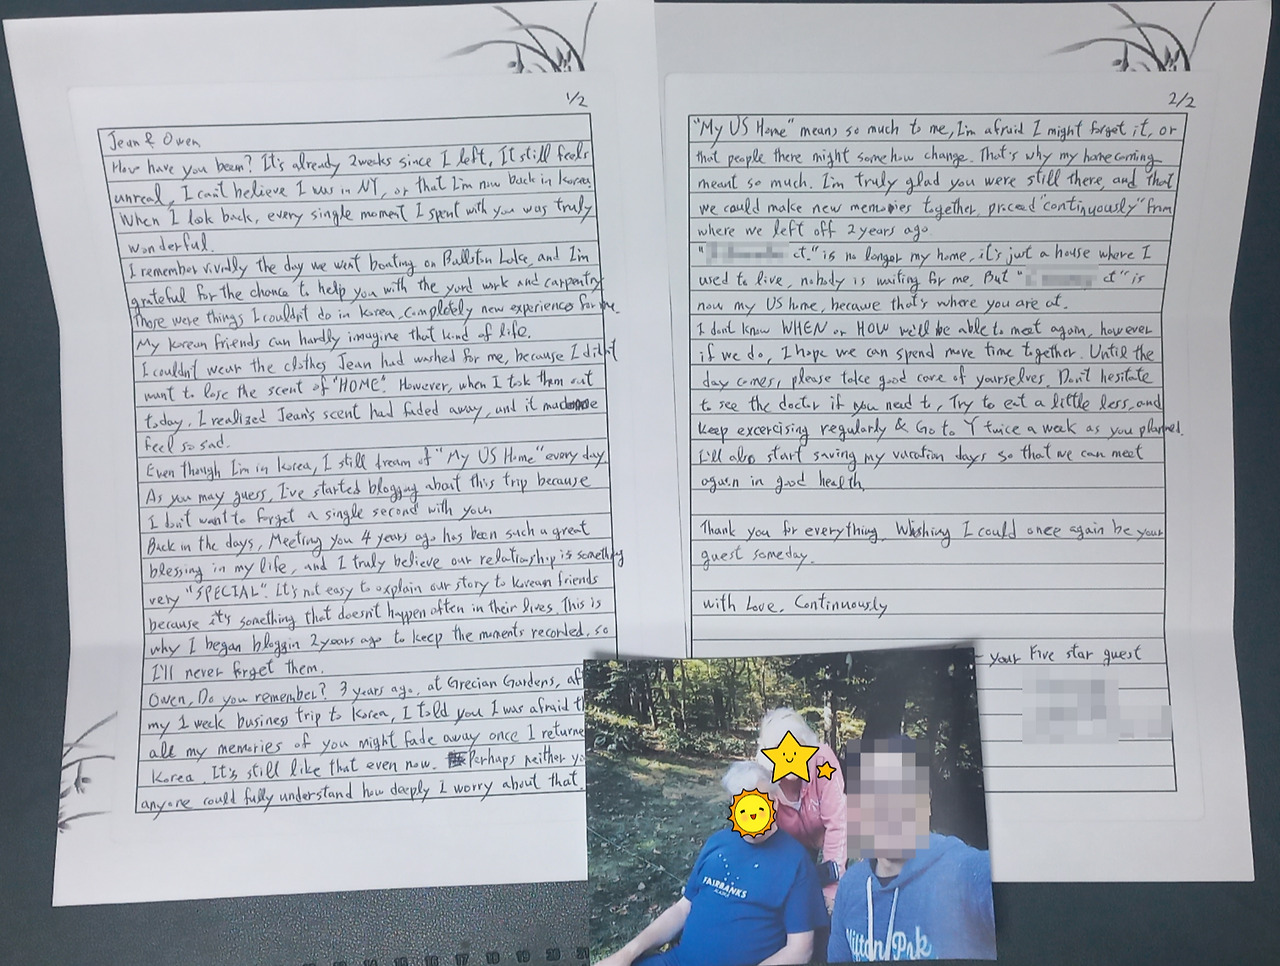 1/2
Jean & Owen
How have you been? It's already 2weeks since I left. It still feels
unreal, I can't believe I was in NY, or that I'm now back in Korea.
When I look back, every single moment I spent with you was truly
wonderful.
I remember vividly the day we went boating on Ballston Lake, and I'm
grateful for the chance to help you with the yard work and carpentry
Those were things I couldn't do in Korea, completely new experiences for me.
My Korean friends can hardly imagine that kind of life.
I couldn't wear the clothes Jean had washed for me, because I didn't
want to lose the scent of "HOME". However, when I took them out
today, I realized Jean's scent had faded away, and it made me
feel so sad.
Even though I'm in Korea, I still dream of "My US Home" every day.
As you may guess, I've started blogging about this trip because
I don't want to forget a single second with you.
Back in the days, Meeting you 4 years ago has been such a great
blessing in my life, and I truly believe our relationship is something
very "SPECIAL". It's not easy to explain our story to Korean friends
because it's something that doesn't happen often in their lives. This is
why I began bloggin 2years ago to keep the moments recorded, so
I'll never forget them.
Owen, Do you remember? 3 years ago, at Grecian Gardens,
my 1 week business trip to Korea, I told you I was afraid
all my memories of you might fade away once I
Korea. It's still like that even now. Perhaps neither
anyone could fully understand how deeply I worry about that.
2/2
"My US Home" means so much to me, I'm afraid I might forget it, or
that people there might somehow change. That's why my homecoming
meant so much. I'm truly glad you were still there, and that
we could make new memories together, proceed "continuously" from
where we left off 2years ago.
" ct." is no longer my home, it's just a house where I
used to live, nobody is waiting for me. But " ct" is
now my US home, because that's where you are at.
I don't know WHEN or HOW we'll be able to meet again, however
if we do, I hope we can spend more time together. Until the
day comes, please take good care of yourselves. Don't hesitate
to see the doctor if you need to, Try to eat a little less, and
keep excercising regularly & Go to Y twice a week as you planned.
I'll also start saving my vacation days so that we can meet
again in good health.
Thank you for everything. Wishing I could once again be your
guest someday.
with Love, Continuously
your Five star guest
FAIRBANKS
ALASKA